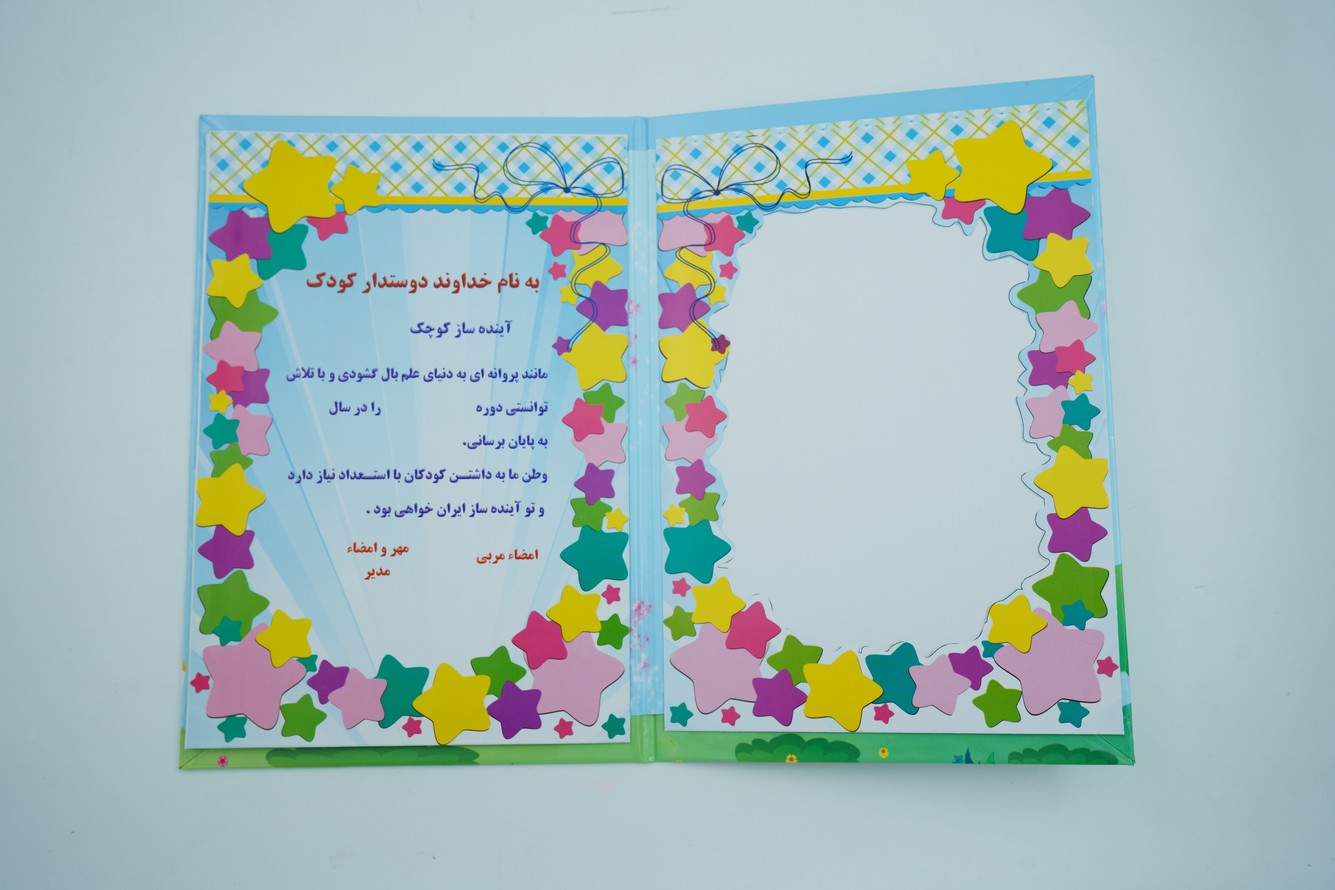 به نام خداوند دوستدار کودک
آینده ساز کوچک
مانند پروانه ای به دنیای علم بال گشودی و با تلاش
توانستی دوره را در سال
به پایان برسانی.
وطن ما به داشتن کودکان با استعداد نیاز دارد
و تو آینده ساز ایران خواهی بود .
امضاء مربی
مهر و امضاء
مدیر